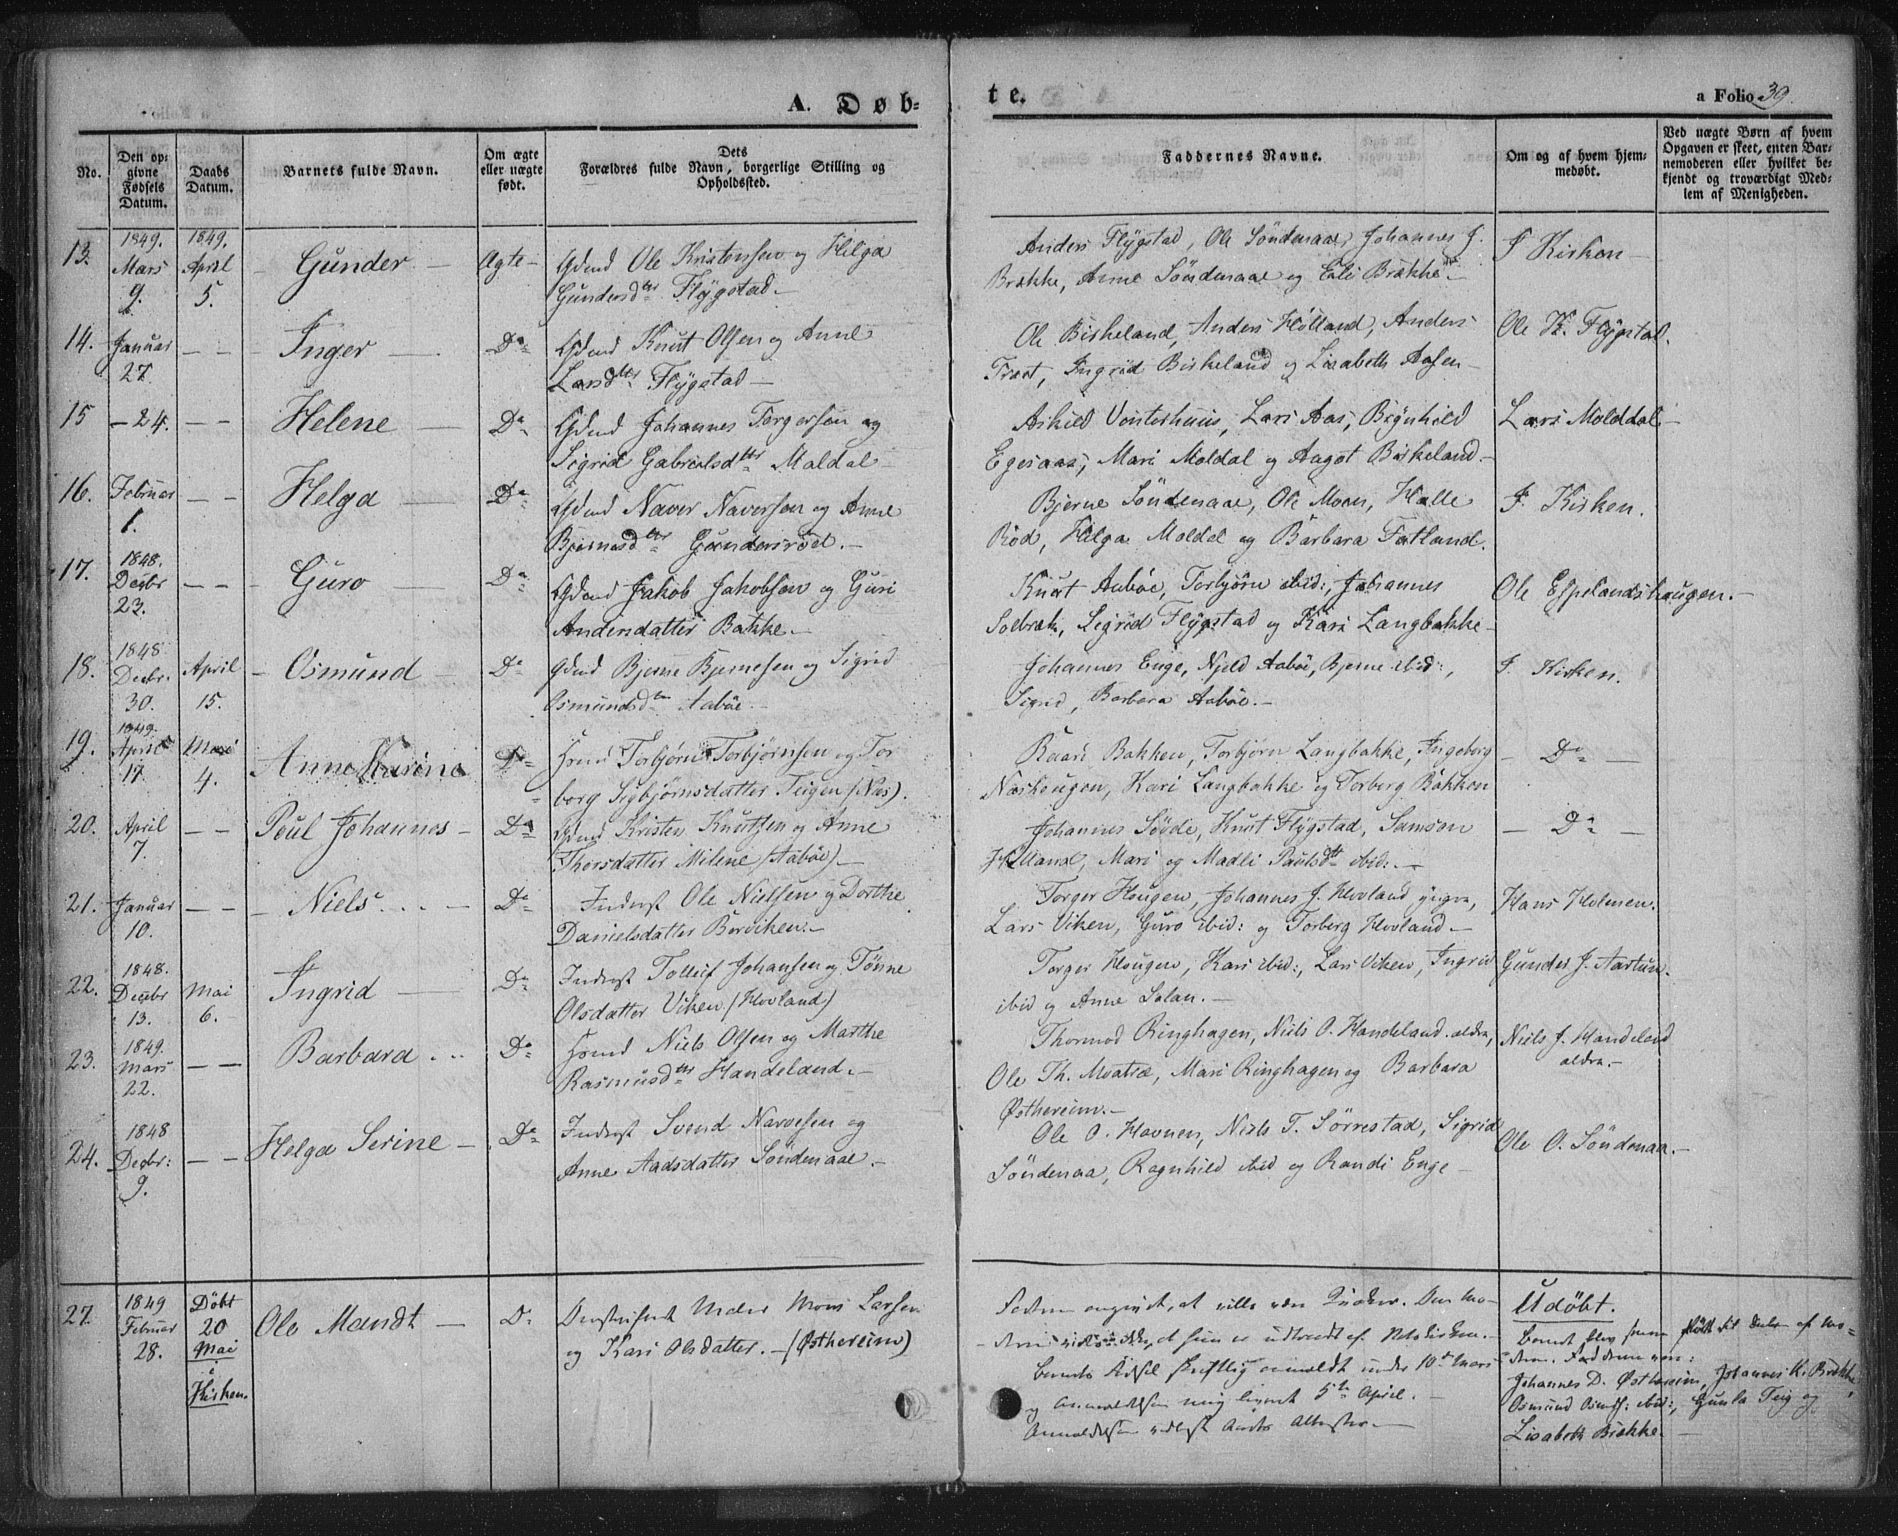 A. Døb-
te.
a Folio 39.
No.
Den op-
givne
Fødsels
Datum.
Daabs
Datum.
Barnets fulde Navn.
Om ægte
eller uægte
født.
Dets
Forældres fulde Navn, borgerlige Stilling og
Opholdssted.
Faddernes Navne.
Om og af hvem hjem-
medøbt.
Ved uægte Børn af hvem
Opgaven er skeet, enten Bar-
nemoderen eller hvilket be-
kjendt og troværdigt Med-
lem af Menigheden.
13. 1849. Mars 9. 1849. April 5. Gunder Ægte
Gdmd Ole Kristensen og Helga
Gundersdtr Flÿgstad.
Anders Flÿgstad, Ole Söndenaae, Johannes J.
Brække, Anne Söndenaae og Eli Brække.
I Kirken
14. Januar 27. Inger Do
Gdmd Knut Olsen og Anne
Larsdtr Flÿgstad
Ole Birkeland, Anders Hölland, Anders
Træet, Ingrid Birkeland og Lisabeth Aasen
Ole K. Flÿgstad.
15 – 24. Helene Do
Gdmd Johannes Torgersen og
Sigrid Gabrielsdtr Maldal
Askild Vonterhuus, Lars Aas, Brÿnhild
Egesaas, Mari Moldal og Aagot Birkeland
Lars Molddal
16. Februar 1. Helga Do
Gdmd Naver Naversen og Anne
Bjernesdtr Gundersröd.
Bjerne Söndenaae, Ole Moen, Halle
Röd, Helga Moldal og Barbara Fatland.
I Kirken.
17. 1848. Decbr 23. Guro Do
Gdmd Jakob Jakobsen og Guri
Andersdatter Bakke.
Knut Aaböe, Torbjörn ibid:, Johannes
Solbræk, Sigrid Flÿgstad og Kari Langbakke
Ole Espelandshaugen.
18. 1848 Decbr. 30. April 15. Osmund Do
Gdmd Bjerne Bjernesen og Sigrid
Osmundsdtr Aaböe.
Johannes Enge, Njeld Aaböe, Bjerne ibid:,
Sigrid, Barbara Aaböe.
I Kirken.
19. 1849. April 17. Mai 4. Anne Karine Do
Hmd Torbjörn Torbjörnsen og Tor
borg Sigbjörnsdatter Teigen (Næs).
Baari Bakken, Torbjörn Langbakke, Ingeborg
Næshougen, Kari Langbakke og Torberg Bakken
– Do –
20. April 7. Poul Johannes Do
Gdmd Kristen Knutsen og Anne
Thorsdatter Milene (Aaböe)
Johannes Söyde, Knut Flÿgstad, Samson
Hölland, Mari og Madli Paulsdtr ibid:
– Do –
21. Januar 10. Niels Do
Inderst Ole Nielsen og Dorthe
Danielsdatter Borviken.
Torger Hougen, Johannes J. Hovland yngre,
Lars Viken, Guro ibid: og Torberg Hovland
Hans Holmen.
22. 1848. Decbr 13. Mai 6. Ingrid Do
Inderst Tollief Johansen og Tönne
Olsdatter Viken (Hovland)
Torger Hougen, Kari ibid:, Lars Viken, Ingrid
ibid og Anne Solan.
Gunder J. Aartun.
23. 1849. Mars 22. Barbara Do
Hmd Niels Olsen og Marthe
Rasmusdtr Handeland.
Thormod Ringhagen, Niels O. Handeland ældre,
Ole Th. Moatræ, Mari Ringhagen og Barbara
Østhereim.
Niels J. Handeland
ældre.
24. 1848 Decbr: 9. Helga Serine Do
Inderst Svend Narvesen og
Anne Aadsdatter Söndenaae.
Ole O. Havnen, Niels T. Sörrestad, Sigrid
Söndenaa, Ragnhild ibid og Randi Enge
Ole O. Söndenaa.
27. 1849 Februar 28. Döbt 20 Mai i Kirken. Ole Mandt Do
Mons Larsen
og Kari Olsdatter. (Østhereim)
at ville være Quæker. Den Mo-
at hun er udtraadt af Statskirken.
Barnets skriftlig anmeldt under 10de Mars
og Anmeldelsen mig 5te April.
Udöbt.
Barnet blev
Fadderne vare:
Johannes D. Östhereim, Johannes K. Brække,
Osmund ibid:, Gunla Teig og
Lisabeth Brække.